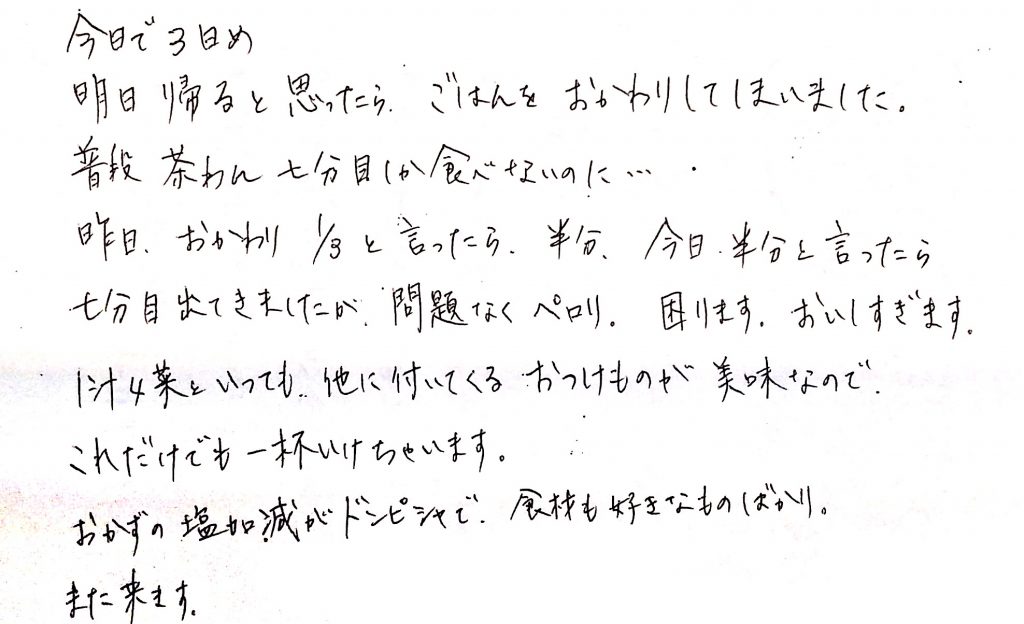 今日で3日め
明日帰ると思ったら、ごはんを おかわりしてしまいました。
普段 茶わん 七分目しか食べないのに…
昨日、おかわり 1/3と言ったら、半分、今日、半分と言ったら
七分目出てきましたが、問題なくペロリ。困ります。おいしすぎます。
1汁4菜といっても、他に付いてくるおつけものが美味なので、
これだけでも一杯いけちゃいます。
おかずの塩加減がドンピシャで、食材も好きなものばかり。
また来ます。